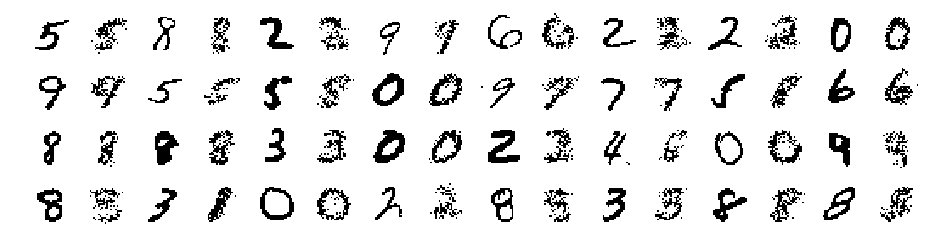 5 5 8 8 2 2 9 9 6 6 2 2 2 2 0 0
9 9 5 5 5 8 0 0 9 9 7 7 5 8 6 6
8 8 8 8 3 3 0 0 2 2 4 6 0 0 9 9
8 3 8 0 0 2 2 8 3 3 8 8 8